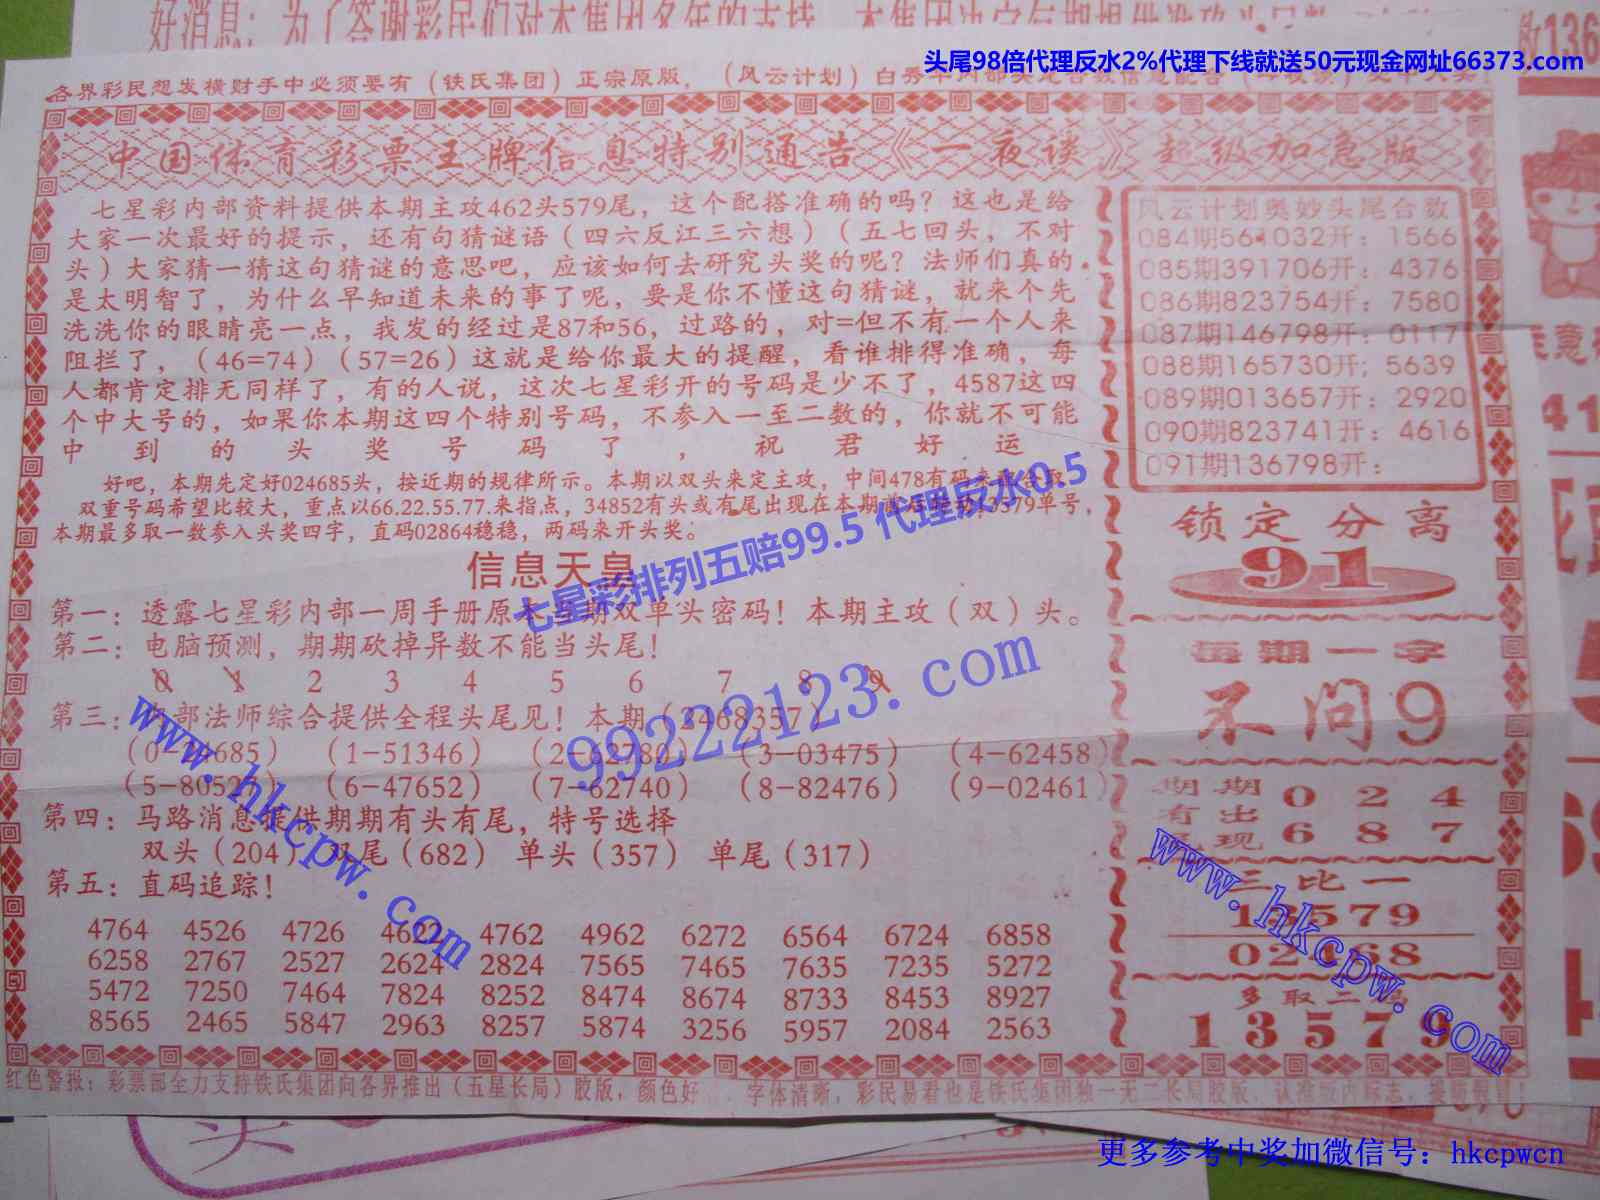 好消息：为了答谢彩民们对本集团多年的支持，本集团决定
头尾98倍代理反水2%代理下线就送50元现金网址66373.com
各界彩民想发横财手中必须要有（铁氏集团）正宗原版，（风云计划）白
中国体育彩票王牌信息特别通告《一夜谈》超级加急版
七星彩内部资料提供本期主攻462头579尾，这个配搭准确的吗？这也是给
大家一次最好的提示，还有句猜谜语（四六反江三六想）（五七回头，不对
头）大家猜一猜这句猜谜的意思吧，应该如何去研究头奖的呢？法师们真的
是太明智了，为什么早知道未来的事了呢，要是你不懂这句猜谜，就来个先
洗洗你的眼睛亮一点，我发的经过是87和56，过路的，对=但不有一个人来
阻拦了，（46=74）（57=26）这就是给你最大的提醒，看谁排得准确，每
人都肯定排无同样了，有的人说，这次七星彩开的号码是少不了，4587这四
个中大号的，如果你本期这四个特别号码，不参入一至二数的，你就不可能
中到的头奖号码了，祝君好运
好吧，本期先定好024685头，按近期的规律所示。本期以双头来定主攻，中间478有码来
双重号码希望比较大，重点以66.22.55.77.来指点，34852有头或有尾出现在本期 13579单号，
本期最多取一数参入头奖四字，直码02864稳稳，两码来开头奖。
七星彩排列五赔99.5 代理反水0.5
信息天皇
第一：透露七星彩内部一周手册原本当期双单头密码！本期主攻（双）头。
第二：电脑预测，期期砍掉异数不能当头尾！
0 1 2 3 4 5 6 7 8 9
第三：内部法师综合提供全程头尾见！本期（2468357）
99222123.com
（0-24685）（1-51346）（2-62780）（3-03475）（4-62458）
（5-80527）（6-47652）（7-62740）（8-82476）（9-02461）
www.hkcpw.com
第四：马路消息提供期期有头有尾，特号选择
双头（204）双尾（682）单头（357）单尾（317）
第五：直码追踪！
4764 4526 4726 4622 4762 4962 6272 6564 6724 6858
6258 2767 2527 2624 2824 7565 7465 7635 7235 5272
5472 7250 7464 7824 8252 8474 8674 8733 8453 8927
8565 2465 5847 2963 8257 5874 3256 5957 2084 2563
风云计划奥妙头尾合数
084期561032开：1566
085期391706开：4376
086期823754开：7580
087期146798开：0117
088期165730开；5639
089期013657开：2920
090期823741开：4616
091期136798开：
锁定分离
91
每期一字
不问9
期期 0 2 4
有出
现 6 8 7
www.hkcpw.com
三比一
13579
02468
多取二
13579
红色警报：彩票部全力支持铁氏集团向各界推出（五星长局）胶版，颜色好 字体清晰，彩民易看也是铁氏集团独一无二长局胶版，认准版内标志，提防假冒！
更多参考中奖加微信号：hkcpwcn